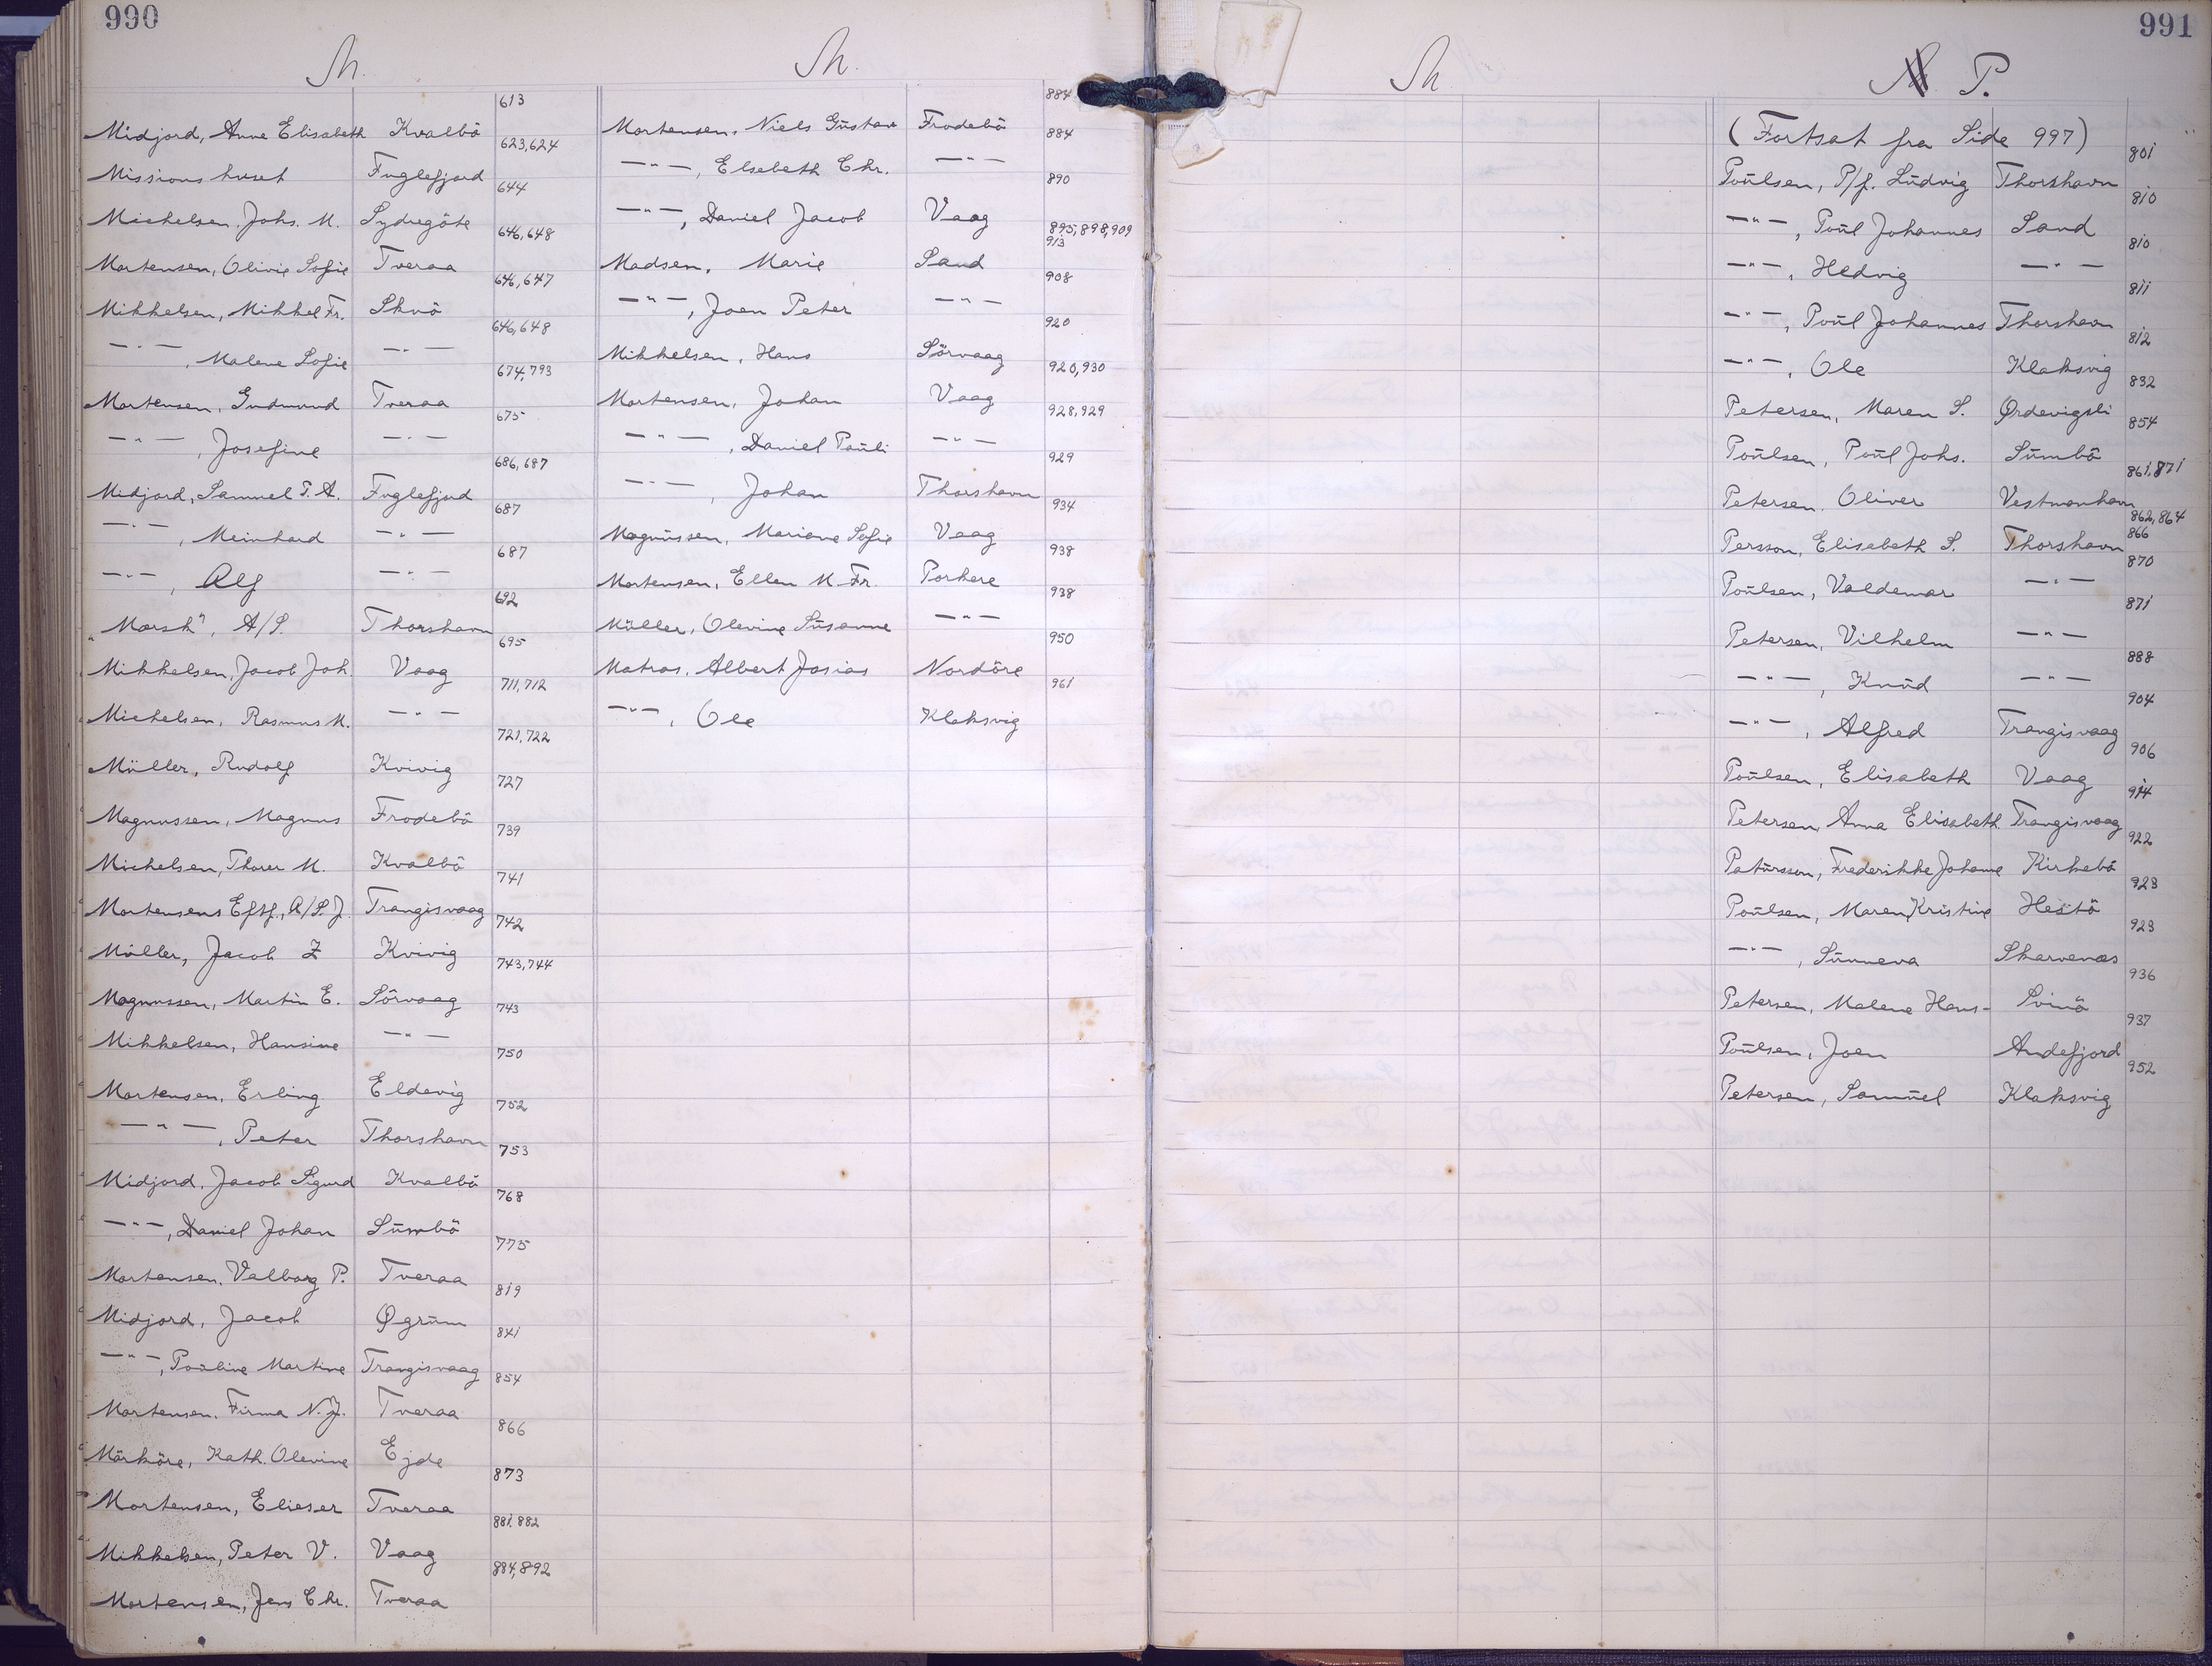 990
M.
613
Midjord, Anne Elisabeth Kvalbö
623,624
Missionshuset Fuglefjord
644
Michelsen. Johs. M. Sydregöte
646,648
Mortensen, Olivie Sofie Tveraa
646,647
Mikkelsen, Mikkel Fr. Skuö
646,648
—"—, Malene Sofie —"—
674,793
Mortensen, Gudmund Tveraa
675
—"—, Josefine —"—
686,687
Midjord, Samuel T. A. Fuglefjord
687
—"—, Meinhard —"—
687
—"—, Alf —"—
692
„Morsk", A/S. Thorshavn
695
Mikkelsen, Jacob Joh. Vaag
711,712
Michelsen, Rasmus M. —"—
721,722
Müller, Rudolf Kvivig
727
Magnussen, Magnus Frodebö
739
Michelsen, Thorer M. Kvalbö
741
Mortensens Eftf., A/S. J. Trangisvaag
742
Müller, Jacob Z Kvivig
743,744
Magnussen, Martin E. Sörvaag
743
Mikkelsen, Hansine —"—
750
Mortensen, Erling Eldevig
752
—"—, Peter Thorshavn
753
Midjord, Jacob Sigurd Kvalbö
768
—"—, Daniel Johan Sumbö
775
Mortensen, Valborg P. Tveraa
819
Midjord, Jacob Øgrum
841
—"—, Pouline Martine Trangisvaag
854
Mortensen, Firma N. J. Tveraa
866
Mörköre, Kath. Olevine Ejde
873
Mortensen, Elieser Tveraa
881,882
Mikkelsen, Peter V. Vaag
884,892
Mortensen, Jens Chr. Tveraa
M.
884
Mortensen, Niels Gustav Frodebö
884
—"—, Elsebeth Chr. —"—
890
—"—, Daniel Jacob Vaag
895,898,909
913
Madsen, Marie Sand
908
—"—, Joen Peter —"—
920
Mikkelsen, Hans Sörvaag
920,930
Mortensen, Johan Vaag
928,929
—"—, Daniel Pauli —"—
929
—"—, Johan Thorshavn
934
Magnussen, Mariane Sofie Vaag
938
Mortensen, Ellen M. Fr. Porkere
938
Müller, Olevine Susanne —"—
950
Matras, Albert Josias Nordöre
961
—"—, Ole Klaksvig
991
M
P.
(Fortsat fra Side 997)
801
Poulsen, P/f. Ludvig Thorshavn
810
—"—, Poul Johannes Sand
810
—"—, Hedvig —"—
811
—"—, Poul Johannes Thorshavn
812
—"—, Ole Klaksvig
832
Petersen, Maren S. Ørdevigsli
854
Poulsen, Poul Johs. Sumbö
861,871
Petersen, Oliver Vestmanhavn
862,864
866
Persson, Elisabeth S. Thorshavn
870
Poulsen, Valdemar —"—
871
Petersen, Vilhelm —"—
888
—"—, Knud —"—
904
—"—, Alfred Trangisvaag
906
Poulsen, Elisabeth Vaag
914
Petersen, Anna Elisabeth Trangisvaag
922
Patursson, Frederikke Johanne Kirkebö
923
Poulsen, Maren Kristine Hestö
923
—"—, Sunneva Skarvenæs
936
Petersen, Malene Hans- Svinö
937
Poulsen, Joen Andefjord
952
Petersen, Samuel Klaksvig